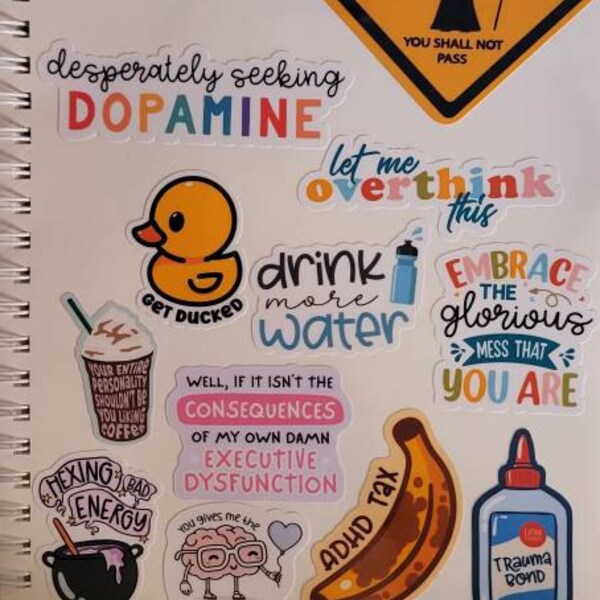 YOU SHALL NOT
PASS
desperately seeking
DOPAMINE
let me
overthink
this
GET DUCKED
drink
more
water
EMBRACE
THE
glorious
MESS THAT
YOU ARE
YOUR ENTIRE
PERSONALITY
SHOULDN'T BE
YOU LIKING
COFFEE
WELL, IF IT ISN'T THE
CONSEQUENCES
OF MY OWN DAMN
EXECUTIVE
DYSFUNCTION
HEXING BAD
ENERGY
YOU gives me the
ADHD TAX
TRAUMA
BOND